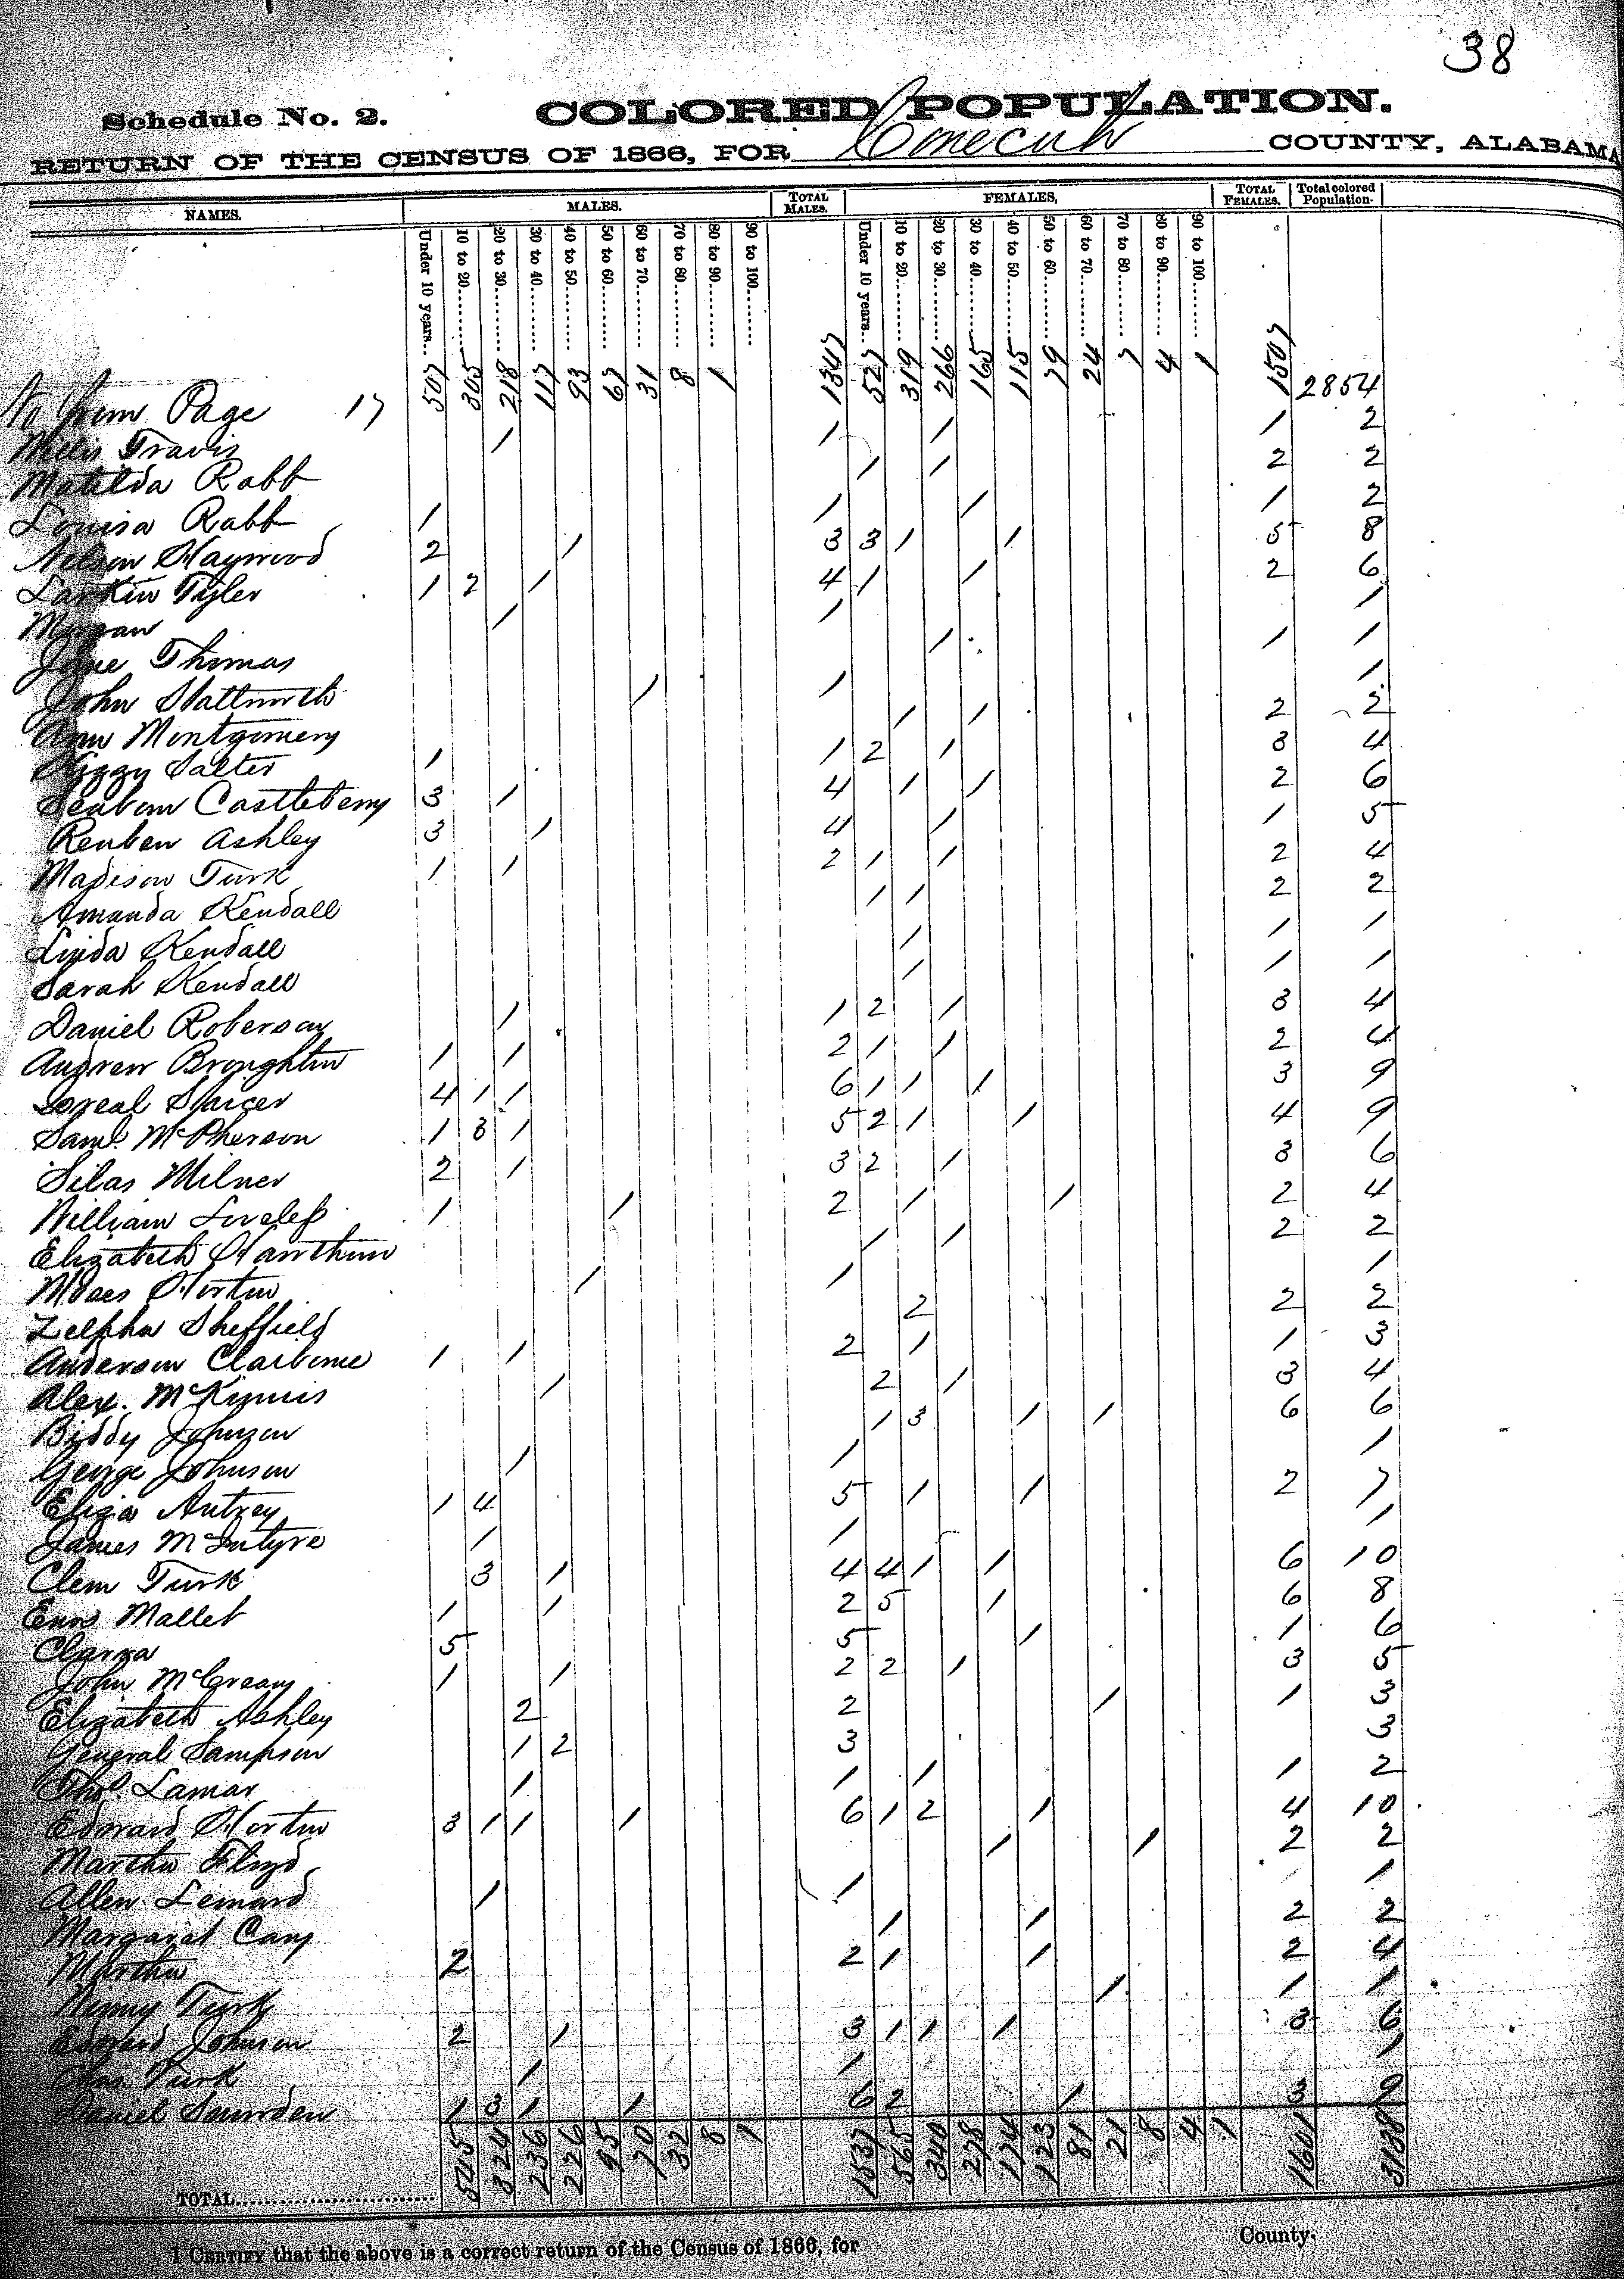 38
Schedule No. 2. COLORED POPULATION.
RETURN OF THE CENSUS OF 1866, FOR Conecuh COUNTY, ALABAMA
NAMES. MALES. TOTAL MALES. FEMALES, TOTAL FEMALES. Total colored Population.
Under 10 years. 10 to 20. 20 to 30. 30 to 40. 40 to 50. 50 to 60. 60 to 70. 70 to 80. 80 to 90. 90 to 100. Under 10 years. 10 to 20. 20 to 30. 30 to 40. 40 to 50. 50 to 60. 60 to 70. 70 to 80. 80 to 90. 90 to 100.
from Page 17 507 305 218 117 93 67 31 8 1 1347 527 319 266 165 115 79 24 7 4 1 1507 2854
Willis Travis 1 1 1 1 2
Matilda Rabb 1 1 2 2
Louisa Rabb 1 1 1 1 2
Nelson Haywood 2 1 3 3 1 1 5 8
Larkin Tyler 1 2 1 4 1 1 2 6
Morgan 1 1 1
Jane Thomas 1 1 1
John Stallworth 1 1 1
Ann Montgomery 1 1 2 2
Kizzy Salter 1 1 2 1 3 4
Seaborn Castleberry 3 1 4 1 1 2 6
Reuben Ashley 3 1 4 1 1 5
Madison Turk 1 1 2 1 1 2 4
Amanda Kendall 1 1 2 2
Linda Kendall 1 1 1
Sarah Kendall 1 1 1
Daniel Roberson 1 1 2 1 3 4
Andrew Broughton 1 1 2 1 1 2 4
Loreal Spicer 4 1 1 6 1 1 1 3 9
Saml. McPherson 1 3 1 5 2 1 1 4 9
Silas Milner 2 1 3 2 1 3 6
William Loveless 1 1 2 1 1 2 4
Elizabeth Hawthorn 1 1 2 2
Moses Horton 1 1 1
Zelpha Sheffield 2 2 2
Anderson Claiborne 1 1 2 1 1 3
Alex. McKinnis 1 2 1 3 4
Biddy Johnson 1 3 1 1 6 6
George Johnson 1 1 1
Eliza Autrey 1 4 5 1 1 2 7
James McIntyre 1 1 1
Clem Turk 3 1 4 4 1 1 6 10
Enos Mallet 1 1 2 5 1 6 8
Clarra 5 5 1 1 6
John McCreary 1 1 2 2 1 3 5
Elizabeth Ashley 2 2 1 1 3
General Sampson 1 2 3 3
Thos. Lamar 1 1 1 1 2
Edward Horton 3 1 1 1 6 1 2 1 4 10
Martha Floyd 1 1 2 2
Allen Leonard 1 1 1
Margaret Cary 1 1 2 2
Martha 2 2 1 1 2 4
Turk 1 1 1
Edward Johnson 2 1 3 1 1 1 3 6
Chas. Turk 1 1 1
Daniel 1 3 1 1 6 2 1 3 9
TOTAL 545 324 236 226 95 70 32 8 1 1537 565 340 278 174 123 81 21 8 4 1 1601 3138
I CERTIFY that the above is a correct return of the Census of 1866, for County.